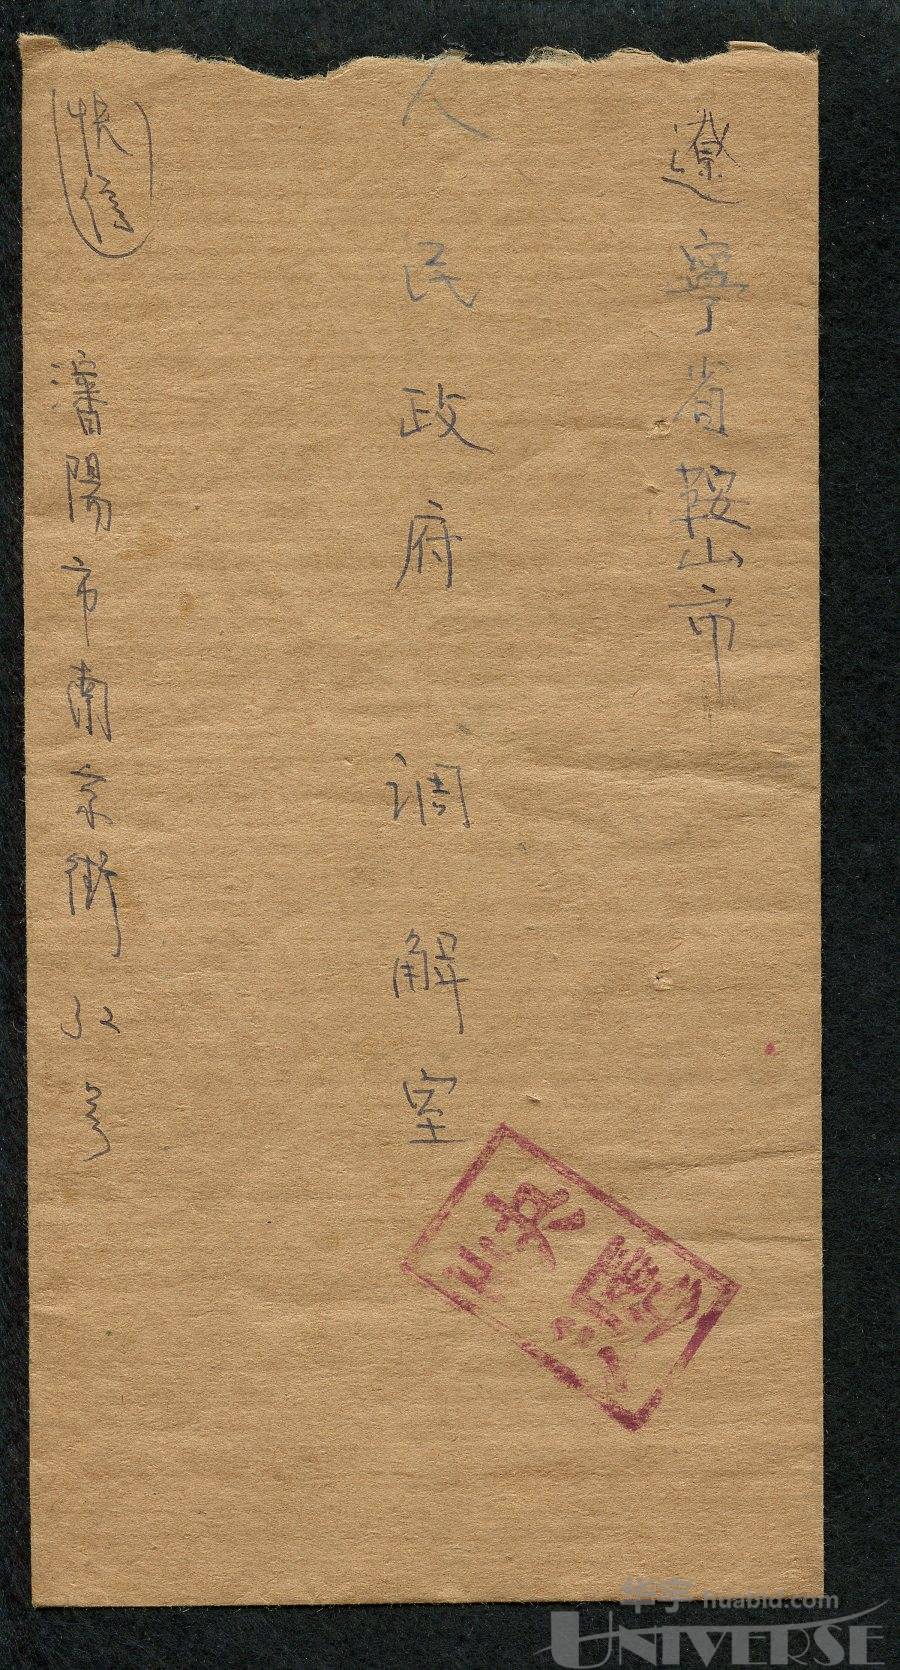 遼寧省鞍山市
人民政府 调解室
快信
瀋陽市南京街
号
华宇 huabid.com
UNIVERSE